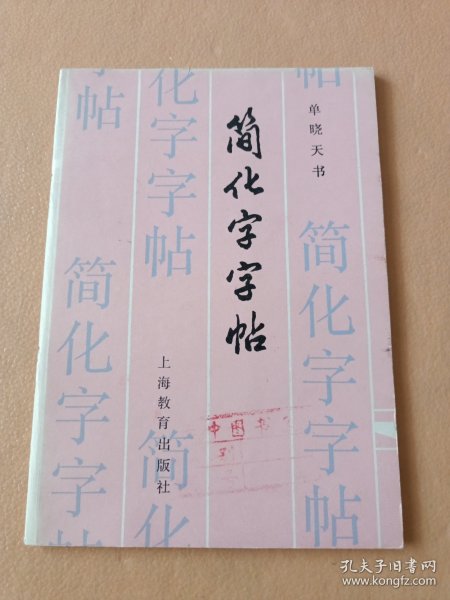 简化字字帖
单晓天书
上海教育出版社
简化字字帖
简化字字帖
化字字帖
简化
帖
帖
中图书
孔夫子旧书网
www.kongfz.com